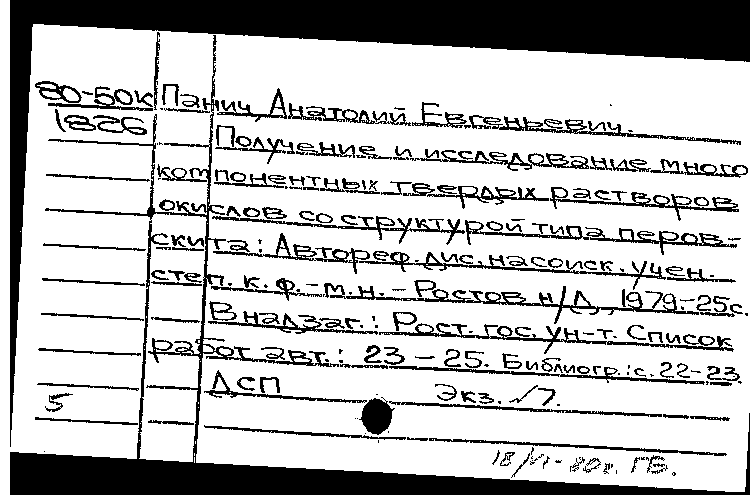 80-50к Панич, Анатолий Евгеньевич.
1826
Получение и исследование много
компонентных твердых растворов
окислов со структурой типа перов-
скита: Автореф. дис. на соиск. учен.
степ. к. ф.-м. н. - Ростов н/Д, 1979.-25с.
В надзаг.: Рост. гос. ун-т. Список
работ авт.: 23-25. Библиогр.: с. 22-23
ДСП Экз. √7.
5
18/VI-80г. ГВ.